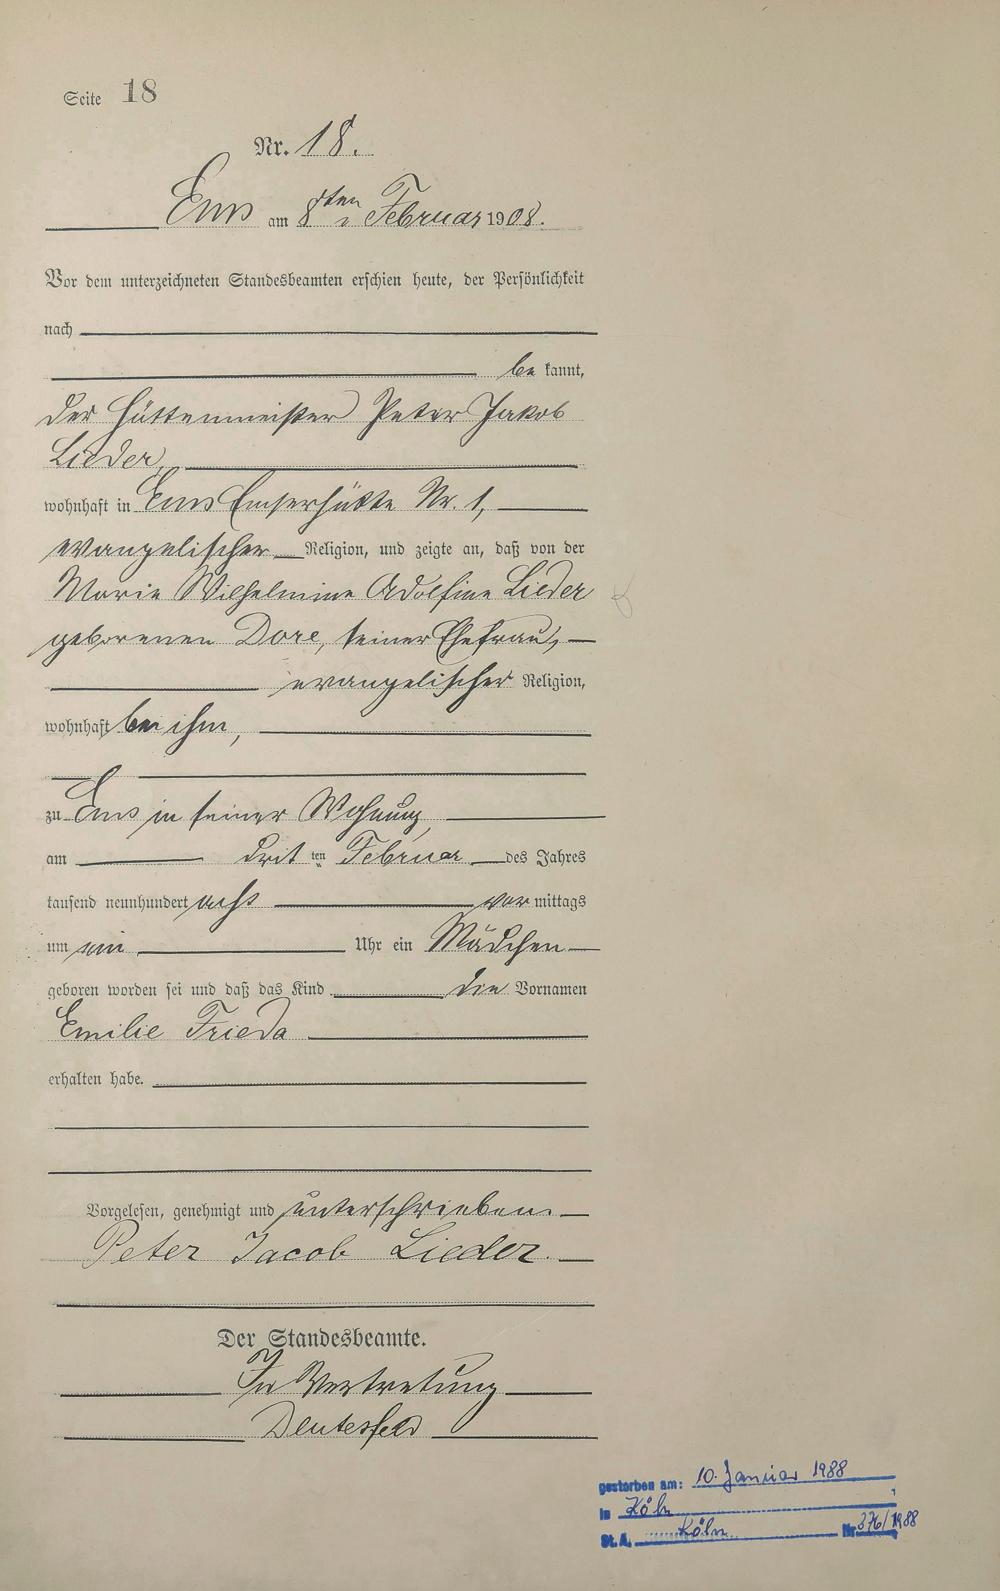 Seite 18
Nr. 18.
Ems am 8ten Februar 1908.
Vor dem unterzeichneten Standesbeamten erschien heute, der Persönlichkeit
nach
be kannt,
der Hüttenmeister Peter Jakob
Lieder,
wohnhaft in Ems Emserhütte Nr. 1,
evangelischer Religion, und zeigte an, daß von der
Marie Wilhelmine Adolfine Lieder
geborenen Dore, seiner Ehefrau,
evangelischer Religion,
wohnhaft bei ihm,
zu Ems in seiner Wohnung
am drit ten Februar des Jahres
tausend neunhundert acht vor mittags
um ein Uhr ein Mädchen
geboren worden sei und daß das Kind die Vornamen
Emilie Frieda
erhalten habe.
Vorgelesen, genehmigt und unterschrieben.
Peter Jacob Lieder.
Der Standesbeamte.
In Vertretung
Deutesfeld
gestorben am: 10. Januar 1988
in Köln
St. A. Köln Nr. 376/1988